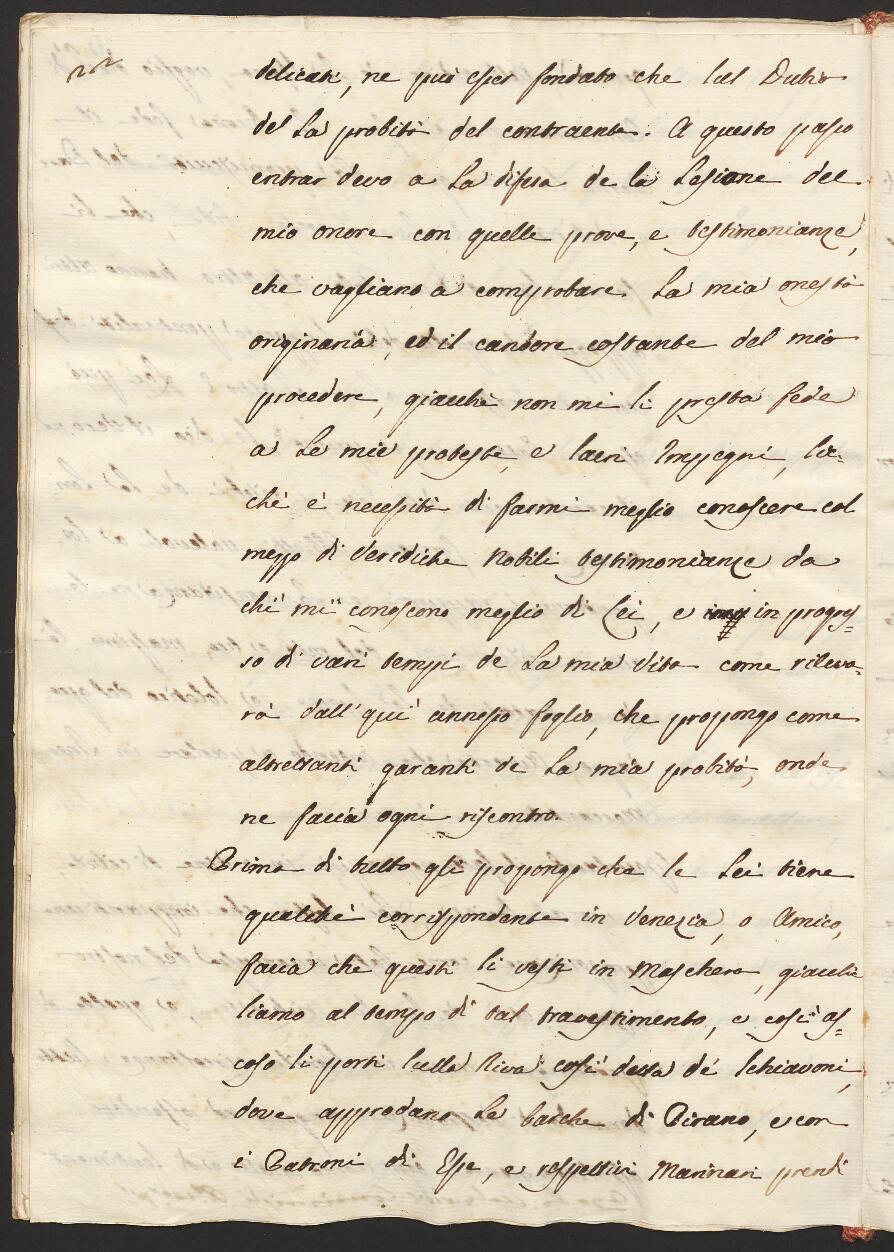 22
delicati, ne può esser fondato che sul Dubio
del La probità del contraente. A questo passo
entrar devo a La difesa de la Lesione del
mio onore con quelle prove, e testimonianze,
che vagliano a comprobare La mia onestà
originaria, ed il candore costante del mio
procedere, giacchè non mi si presta fede
a Le mie proteste, e sacri Impegni, sic-
chè è necessità di farmi meglio conoscere col
mezzo di veridiche Nobili testimonianze da
chi mi conoscono meglio di Lei, e in progres-
so di vari tempi de La mia Vita come rileva-
rà dall' qui annesso foglio, che propongo come
altrettanti garanti de La mia probità, onde
ne faccia ogni riscontro.
Prima di tutto gli propongo che se Lei tiene
qualche corrispondente in Venezia, o Amico,
facia che questi si vesti in Maschera, giacchè
siamo al tempo di tal travestimento, e così as-
coso si porti sulla Riva così detta de' Schiavoni,
dove approdano Le barche di Pirano, e con
i Patroni di Esse, e respettivi Marinari prendi